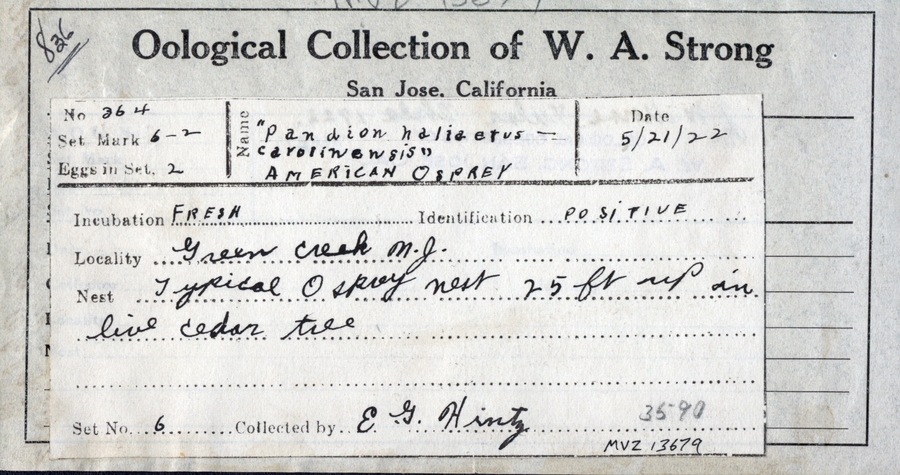 836
Oological Collection of W. A. Strong
San Jose, California
No 364
Set Mark 6-2
Eggs in Set, 2
Name "Pandion haliaetus —
carolinensis"
AMERICAN OSPREY
Date
5/21/22
Incubation FRESH Identification POSITIVE
Locality Green Creek N.J.
Nest Typical Osprey nest 25 ft up in
live cedar tree
Set No. 6 Collected by E G. Hintz
3590
MVZ 13679